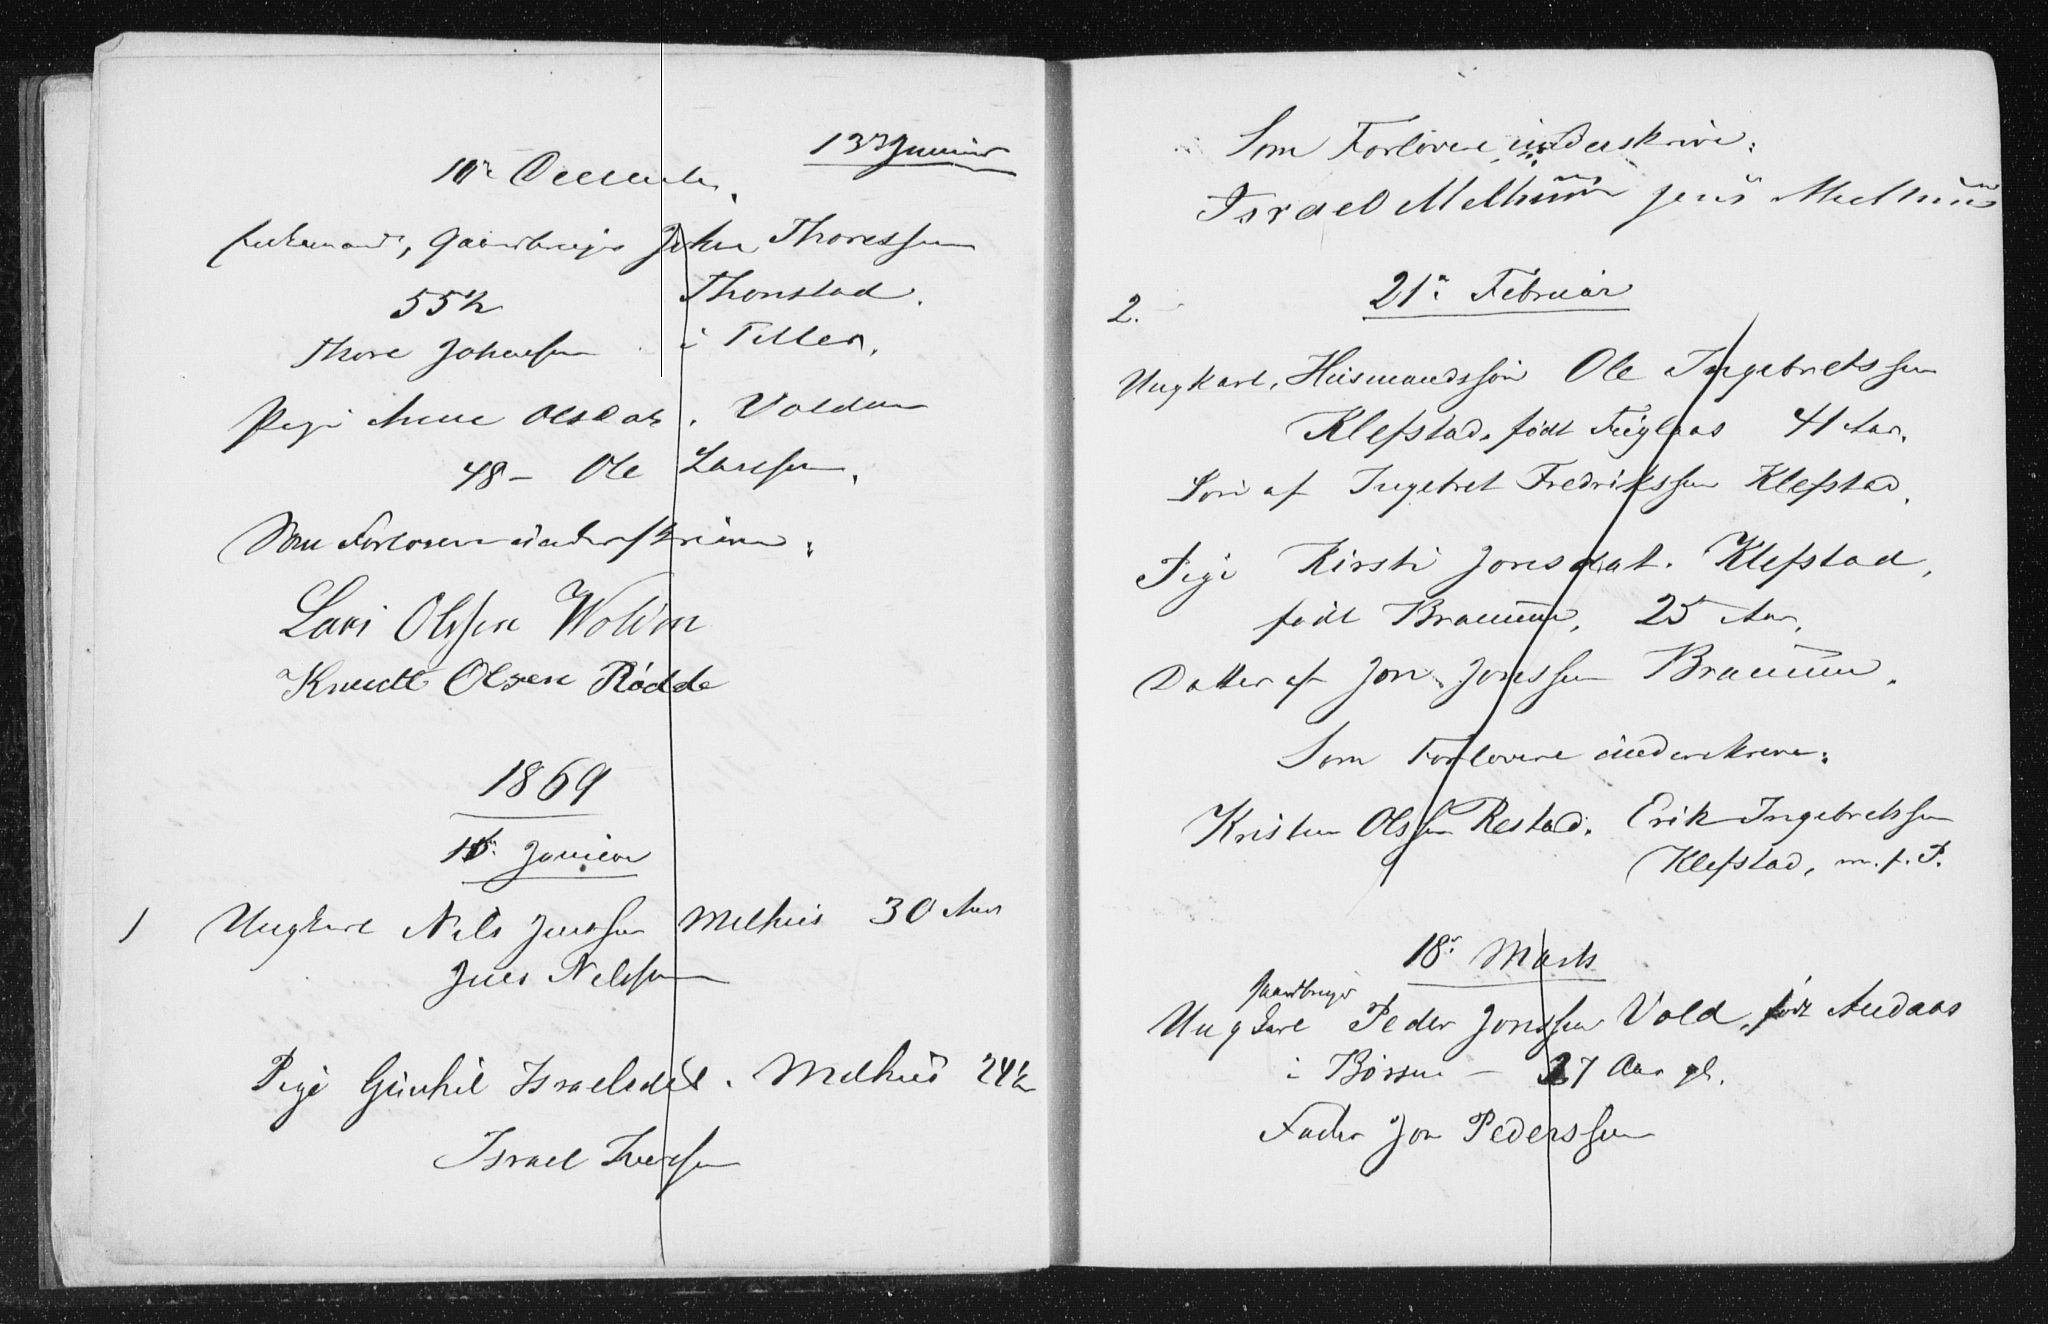 13 Januar
10de December
Enkemand, Gaardbruger John Thoressen
55½ Thonstad.
Thore Johnsen i Tiller.
Pige Anne Olsdat. Volden
48 – Ole Larssen.
Som Forlovere underskrive:
Lars Olssen Woldn
Knudt Olsen Rødde
1869
Januar
1 Ungkarl Nils Jenssen Melhus 30 Aar
Jens Nilssen
Pige Gunhil Israelsdat. Melhus 24½
Israel Iversen
Som Forlovere underskrive:
Israel Melhuus Jens Melhuus
21de Februar
2.
Ungkarl, Husmandssøn Ole Ingebretssen
Klefstad, født Fuglaas 41 Aar.
Søn af Ingebret Fredrikssen Klefstad.
Pige Kirsti Jonsdat. Klefstad,
født Braauun, 25 Aar,
Datter af Jon Jonssen Braauun.
Som Forlovere underskreve:
Kristen Olssen Restad. Erik Ingebretssen
Klefstad, m. p. P.
18de Marts
Gaardbruger
Ungkarl Peder Jonssen Vold, født Aadaas
i Børsen – 27 Aar gl.
Fader Jon Pederssen